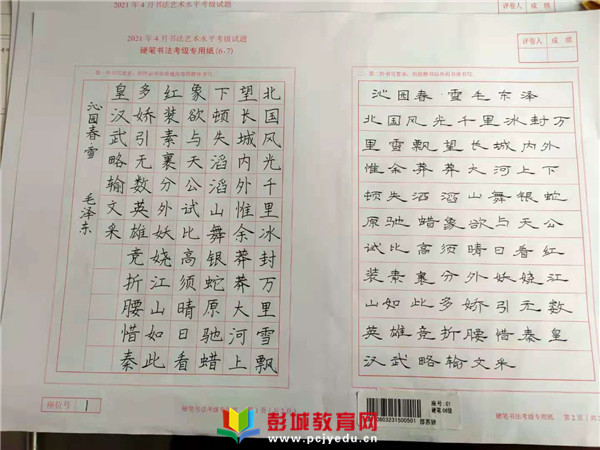 2021年4月书法艺术水平考级试题
2021年4月书法艺术水平考级试题
硬笔书法考级专用纸(6、7)
北国风光千里冰封万里雪飘
望长城内外惟余莽莽大河上
下顿失滔滔山舞银蛇原驰蜡
象欲与天公试比高须晴日看
红装素裹分外妖娆江山如此
多娇引无数英雄竞折腰惜秦
皇汉武略输文采
沁园春 雪 毛泽东
座位号 1
评卷人 成绩
评卷人 成绩
沁园春·雪毛泽东
北国风光千里冰封万
里雪飘望长城内外
惟余莽莽大河上下
顿失滔滔山舞银蛇
原驰蜡象欲与天公
试比高须晴日看红
装素裹分外妖娆江
山如此多娇引无数
英雄竞折腰惜秦皇
汉武略输文采
座号:01
硬笔06级
硬笔书法考级专用纸
彭城教育网
www.pcjyedu.cn